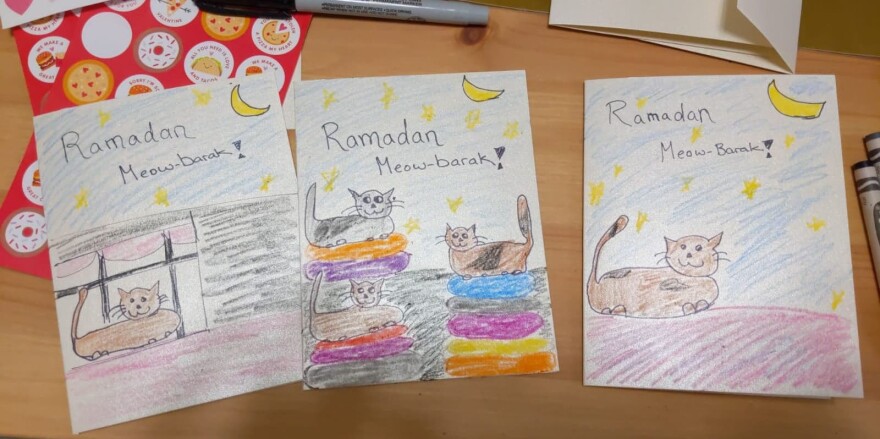 Ramadan
Meow-barak!
Ramadan
Meow-barak!
Ramadan
Meow-Barak!
WE MAKE A
GREAT
ALL YOU NEED IS LOVE
AND TACOS
VALENTINE
A PIZZA MY HEART
WE MAKE A